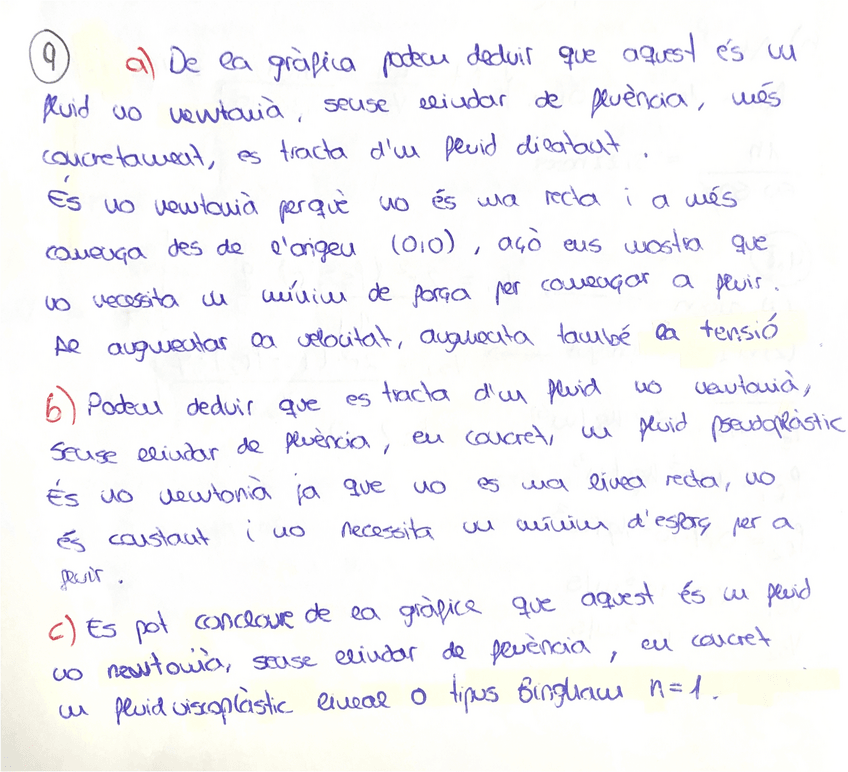 9 a) De la gràfica podem deduir que aquest és un
fluid no newtonià, sense llindar de fluència, més
concretament, es tracta d'un fluid dilatant.
És no newtonià perquè no és una recta i a més
comença des de l'origen (0,0), açò ens mostra que
no necessita un mínim de força per començar a fluir.
Al augmentar la velocitat, augmenta també la tensió
b) Podem deduir que es tracta d'un fluid no newtonià,
sense llindar de fluència, en concret, un fluid pseudoplàstic
És no newtonià ja que no es una línea recta, no
és constant i no necessita un mínim d'esforç per a
fluir.
c) Es pot concloure de la gràfica que aquest és un fluid
no newtonià, sense llindar de fluència, en concret
un fluid viscoplàstic lineal o tipus Bingham n=1.